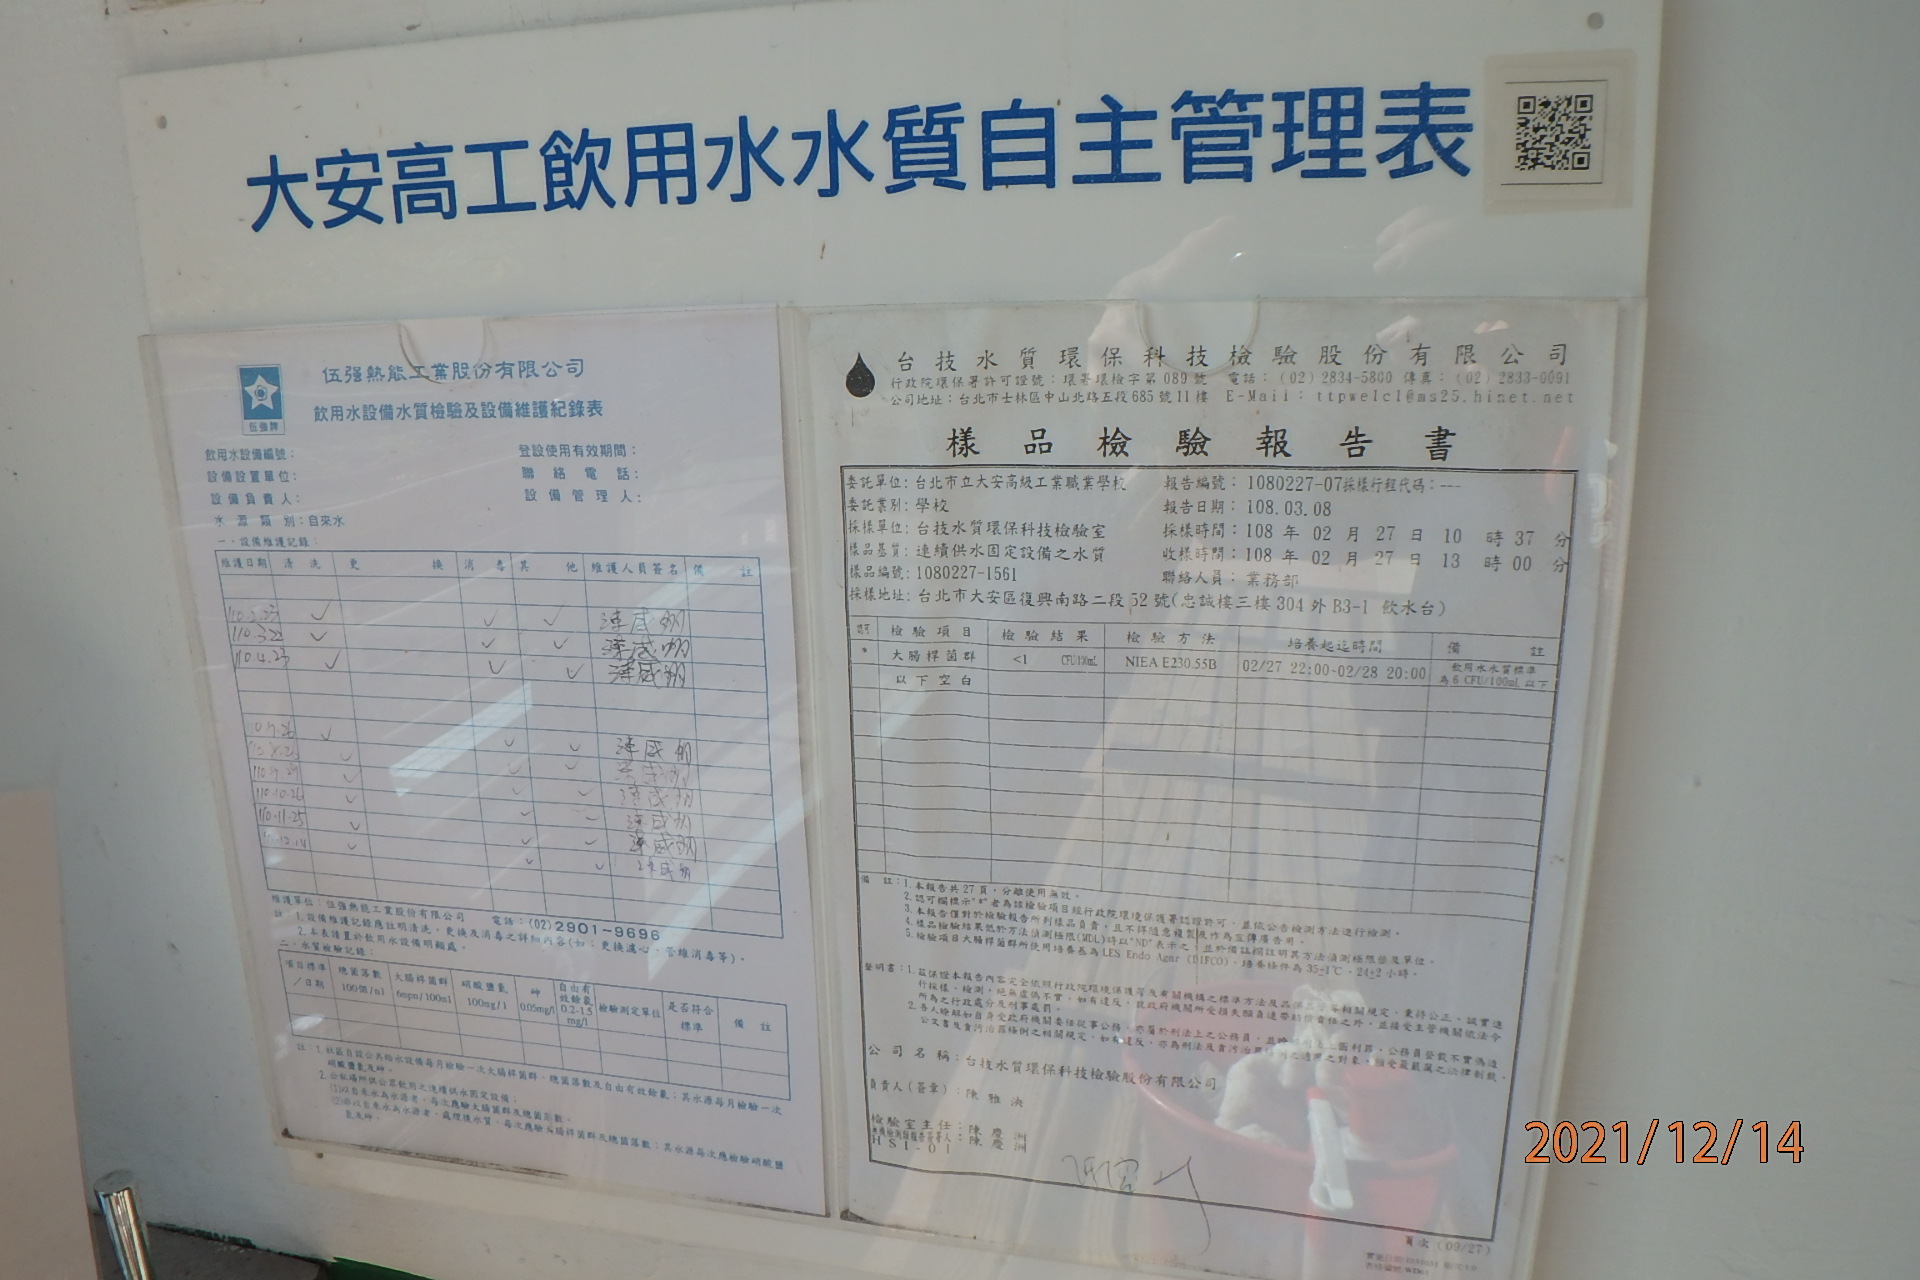 大安高工飲用水水質自主管理表
伍強牌
伍强熱能工業股份有限公司
飲用水設備水質檢驗及設備維護紀錄表
飲用水設備編號：
登設使用有效期間：
設備設置單位：
聯絡電話：
設備負責人：
設備管理人：
水源類別：自來水
一、設備維護記錄：
維護日期 清洗 更換 消毒 其他 維護人員簽名 備註
110.2.23
110.3.22
110.4.23
110.10.26
110.11.25
110.12.14
維護單位：伍強熱能工業股份有限公司 電話：(02)2901-9696
註：1.設備維護記錄應註明清洗、更換及消毒之詳細內容(如：更換濾心、管維消毒等)。
2.本表請置於飲用水設備明顯處。
二、水質檢驗記錄：
項目標準／日期 總菌落數 100個/ml 大腸桿菌群 6mpn/100ml 硝酸鹽氮 100mg/l 砷 0.05mg/l 自由有效餘氯 0.2-1.5 mg/l 檢驗測定單位 是否符合標準 備註
註：1.社區自設公共給水設備每月檢驗一次大腸桿菌群、總菌落數及自由有效餘氯；其水源每月檢驗一次
硝酸鹽氮及砷。
2.公私場所供公眾飲用之連續供水固定設備：
(1)以自來水為水源者，每次應驗大腸菌群及總菌落數。
(2)非以自來水為水源者，處理後水質，每次應驗大腸桿菌群及總菌落數；其水源每次應檢驗硝酸鹽
氮及砷。
台技水質環保科技檢驗股份有限公司
行政院環保署許可證號：環署環檢字第089號 電話：(02)2834-5800 傳真：(02)2833-0091
公司地址：台北市士林區中山北路五段685號11樓 E-Mail：ttpwelcl@ms25.hinet.net
樣品檢驗報告書
委託單位：台北市立大安高級工業職業學校 報告編號：1080227-07採樣行程代碼：---
委託業別：學校 報告日期：108.03.08
採樣單位：台技水質環保科技檢驗室 採樣時間：108 年 02 月 27 日 10 時 37 分
樣品基質：連續供水固定設備之水質 收樣時間：108 年 02 月 27 日 13 時 00 分
樣品編號：1080227-1561 聯絡人員：業務部
採樣地址：台北市大安區復興南路二段52號(忠誠樓三樓304外B3-1 飲水台)
檢驗項目 檢驗結果 檢驗方法 培養起迄時間 備註
* 大腸桿菌群 <1 CFU/100mL NIEA E230.55B 02/27 22:00~02/28 20:00 飲用水水質標準
為6 CFU/100mL 以下
以下空白
備註：1.本報告共27頁，分離使用無效。
2.認可欄標示"*"者為該檢驗項目經行政院環境保護署認證許可，並依公告檢測方法進行檢測。
3.本報告僅對於檢驗報告所列樣品負責，且不得隨意複製及作為宣傳廣告用。
4.樣品檢驗結果低於方法偵測極限(MDL)時以"ND"表示之，並於備註欄註明其方法偵測極限值及單位。
5.檢驗項目大腸桿菌群所使用培養基為LES Endo Agar (DIFCO)，培養條件為35±1℃，24±2小時。
公司名稱：台技水質環保科技檢驗股份有限公司
負責人(簽章)：陳雅泱
檢驗室主任：陳慶洲
HSI-01
頁次 (09/27)
2021/12/14